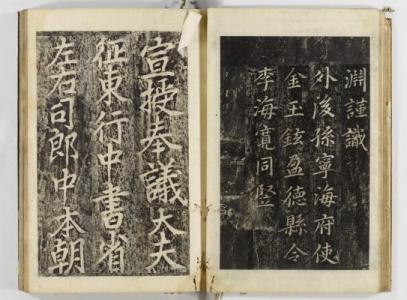 淵謹識
外後孫寧海府使
金玉鉉盈德縣令
李海寬同竪
宣授奉議大夫
征東行中書省
左右司郎中本朝